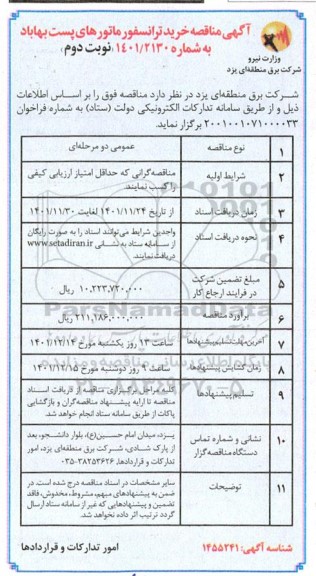 آگهی مناقصه خرید ترانسفورماتورهای پست بهاباد
به شماره ۱۴۰۱/۲۱۳۰ (نوبت دوم)
وزارت نیرو
شرکت برق منطقه‌ای یزد
شرکت برق منطقه‌ای یزد در نظر دارد مناقصه فوق را بر اساس اطلاعات
ذیل و از طریق سامانه تدارکات الکترونیکی دولت (ستاد) به شماره فراخوان
۲۰۰۱۰۰۱۰۷۱۰۰۰۰۳۳ برگزار نماید.
۱ نوع مناقصه عمومی دو مرحله‌ای
۲ شرایط اولیه مناقصه‌گرانی که حداقل امتیاز ارزیابی کیفی
را کسب نمایند.
۳ زمان دریافت اسناد از تاریخ ۱۴۰۱/۱۱/۲۴ لغایت ۱۴۰۱/۱۱/۳۰
۴ نحوه دریافت اسناد واجدین شرایط می‌توانند اسناد را به صورت رایگان
از سامانه ستاد به نشانی www.setadiran.ir
دریافت نمایند.
۵ مبلغ تضمین شرکت
در فرایند ارجاع کار ۱۰,۲۲۳,۷۲۰,۰۰۰ ریال
۶ برآورد مناقصه ۲۱۱,۱۸۶,۰۰۰,۰۰۰ ریال
۷ آخرین مهلت تسلیم پیشنهادها ساعت ۱۳ روز یکشنبه مورخ ۱۴۰۱/۱۲/۱۴
۸ زمان گشایش پیشنهادها ساعت ۹ روز دوشنبه مورخ ۱۴۰۱/۱۲/۱۵
۹ تسلیم پیشنهادها کلیه مراحل برگزاری مناقصه از دریافت اسناد
مناقصه تا ارایه پیشنهاد مناقصه‌گران و بازگشایی
پاکات از طریق سامانه ستاد انجام خواهد شد.
۱۰ نشانی و شماره تماس
دستگاه مناقصه‌گزار یزد، میدان امام حسین(ع)، بلوار دانشجو، بعد
از پارک شادی، شرکت برق منطقه‌ای یزد، امور
تدارکات و قراردادها. ۳۸۲۵۳۶۲۶-۰۳۵
۱۱ توضیحات سایر مشخصات در اسناد مناقصه درج شده است. در
ضمن به پیشنهادهای مبهم، مشروط، مخدوش، فاقد
تضمین و پیشنهادهایی که غیر از سامانه ستاد ارسال
گردد ترتیب اثر داده نخواهد شد.
شناسه آگهی: ۱۴۵۵۲۴۱
امور تدارکات و قراردادها